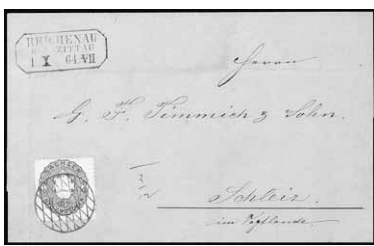 REICHENAU
BEI ZITTAU
1 X 64 VII
Herrn
G. F. Timmich & Sohn.
Schleiz.
im Vogtlande.